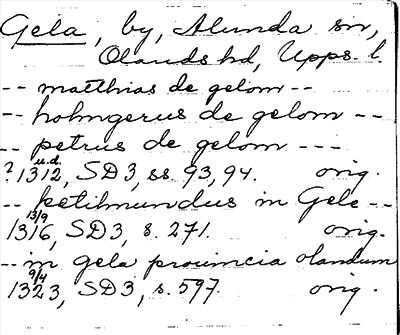 Gela, by, Alunda sn,
Olands hd, Upps. l.
-- matthias de gelom --
-- holmgerus de gelom --
-- petrus de gelom ---
u.d.
? 1312, SD3, ss. 93, 94. orig.
-- ketilmundus in Gele --
13/9
1316, SD3, s. 271. orig.
-- in gela prouincia olandum
9/4
1323, SD3, s. 597. orig.